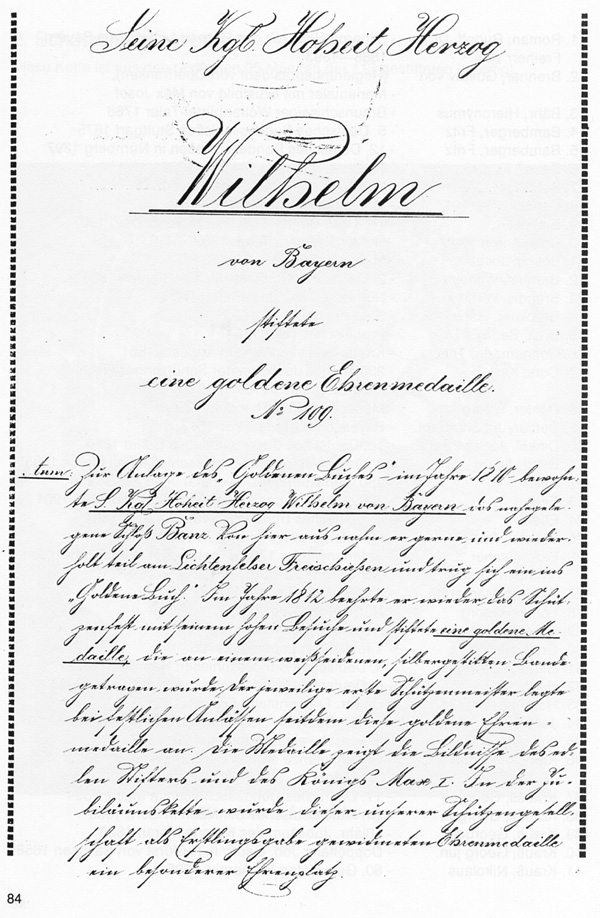 Seine Kgl. Hoheit Herzog
Wilhelm
von Bayern
stiftete
eine goldene Ehrenmedaille.
No 109.
Anm: Zur Anlage des „Goldenen Buches" im Jahre 1810 bewohn-
te S. Kgl. Hoheit Herzog Wilhelm von Bayern das nahegele-
gene Schloß Banz. Von hier aus nahm er gerne und wieder-
holt teil am Lichtenfelser Freischießen und trug sich ein ins
„Goldene Buch". Im Jahre 1812 beehrte er wieder das Schüt-
zenfest mit seinem hohen Besuche und stiftete eine goldene Me-
daille, die an einem weißseidenen, silbergestickten Bande
getragen wurde. Der jeweilige erste Schützenmeister legte
bei festlichen Anlässen seitdem diese goldene Ehren-
medaille an. Die Medaille zeigt die Bildnisse des ed-
len Stifters und des Königs Max I. In der Ju-
biläumskette wurde dieser unserer Schützengesell-
schaft als Erstlingsgabe gewidmeten Ehrenmedaille
ein besonderer Ehrenplatz.
84